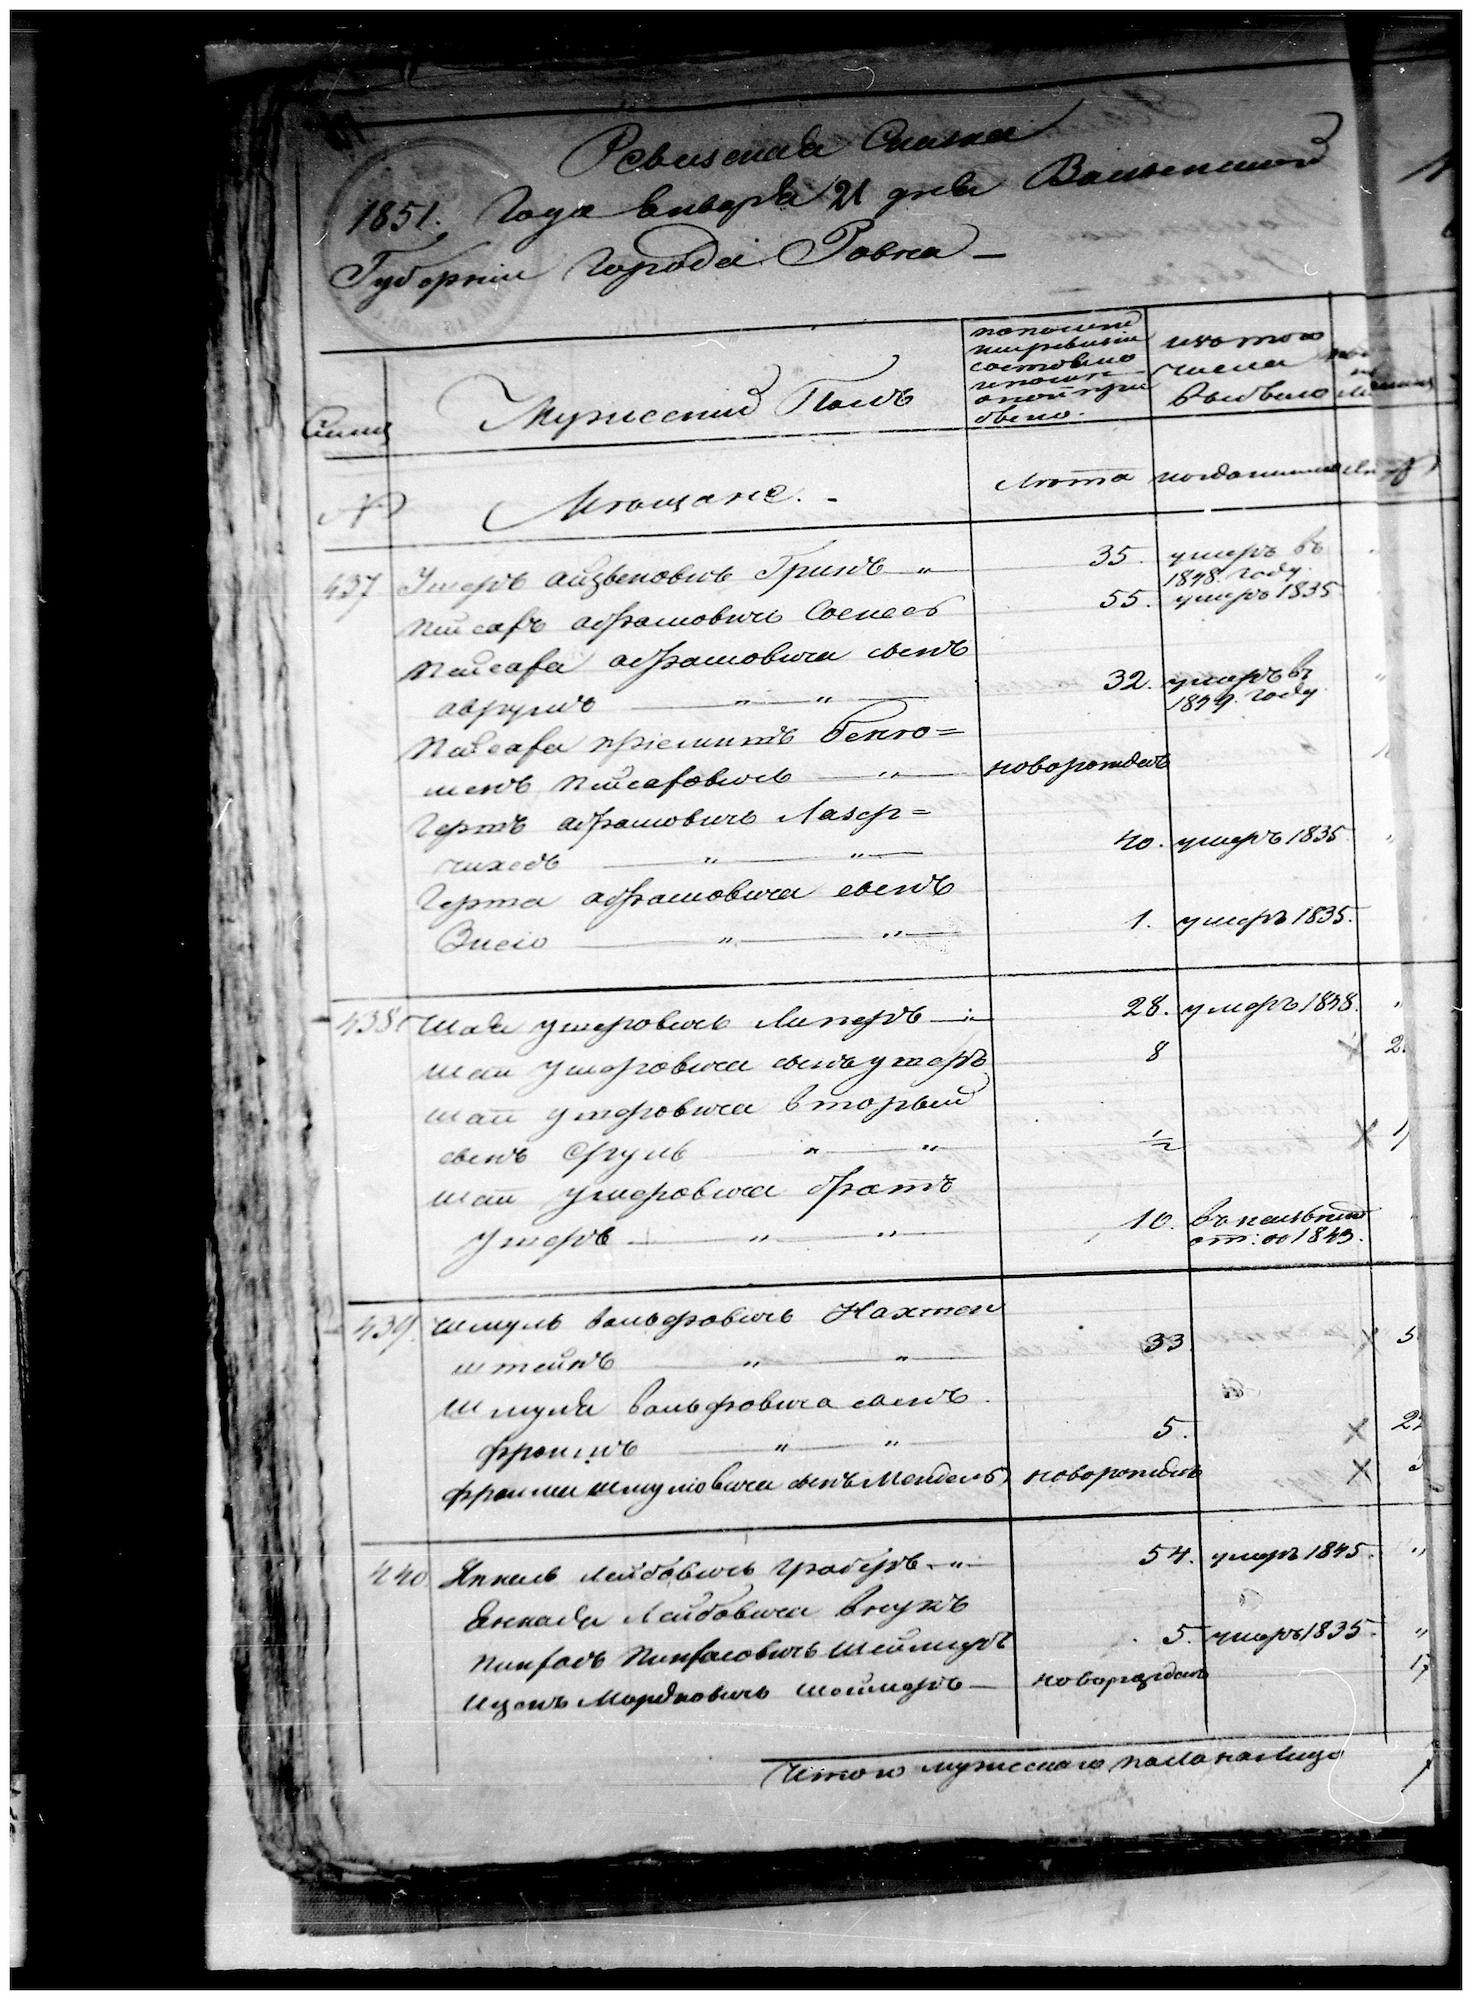 Ревизская Сказка
1851. Года января 21 дня Волынской
Губерніи города Ровна —
Семьи
Мужеский Полъ
по последней
ревизіи
состояло
и после
оной при
было.
изъ того
числа
выбыло
№
Мещане. -
Лета
когда именно
437 Умеръ Айзыковичъ Гринъ „ 35. умеръ въ
1848. году.
Пейсахъ Абрамовичъ 55. умеръ 1835
Пейсаха Абрамовича сынъ
Аврумъ „ „ 32. умеръ въ
1849. году
Пейсаха пріемышъ Беню=
менъ Пейсаховичъ „ новорожденъ
Гершъ Абрамовичъ Лазер=
„ „ 40. умеръ 1835.
Герша Абрамовича сынъ
„ „ 1. умеръ 1835.
438 Шая Ушеровичъ Липеръ „ 28. умеръ 1838. „
Шаи Ушеровича сынъ Ушеръ 8 X 2
Шаи Ушеровича вторый
сынъ Сруль „ „ 1/2 X 1
Шаи Ушеровича братъ
Ушеръ „ „ 10. въ неизвестной
от: 1843.
439. Шмуль Вольфовичъ Нахтен
штейнъ „ „ 33 X 5
Шмуля Вольфовича сынъ
Фроимъ „ „ 5. X 22
Фроима Шмулiовича сынъ Мендель новорожденъ X
440 Янкель Лейбовичъ Граберъ „ 54. умеръ 1845. „
Янкеля Лейбовича внукъ
Пинхасъ Пинхасовичъ Шеймеръ 5. умеръ 1835. „
Ицекъ Мордковичъ Шеймеръ новорожденъ 17
Итого мужескаго пола налицо